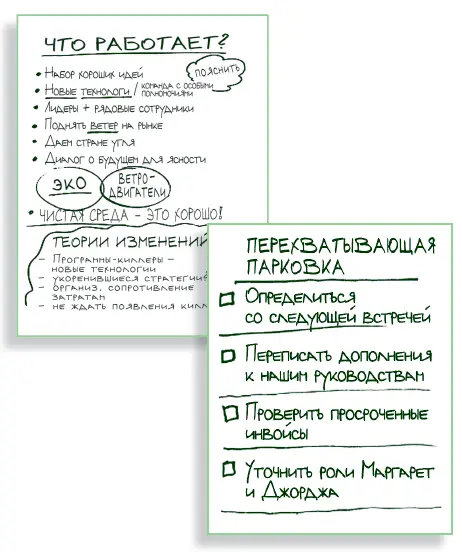 ЧТО РАБОТАЕТ?
• НАБОР ХОРОШИХ ИДЕЙ
ПОЯСНИТЬ
• НОВЫЕ ТЕХНОЛОГИ / КОМАНДА С ОСОБЫМИ
ПОЛНОМОЧИЯМИ
• ЛИДЕРЫ + РЯДОВЫЕ СОТРУДНИКИ
• ПОДНЯТЬ ВЕТЕР НА РЫНКЕ
• ДАЕМ СТРАНЕ УГЛЯ
• ДИАЛОГ О БУДУЩЕМ ДЛЯ ЯСНОСТИ
ЭКО
ВЕТРО-
ДВИГАТЕЛИ
• ЧИСТАЯ СРЕДА – ЭТО ХОРОШО!
ТЕОРИИ ИЗМЕНЕНИЙ
– ПРОГРАММЫ-КИЛЛЕРЫ –
НОВЫЕ ТЕХНОЛОГИИ
– УКОРЕНИВШИЕСЯ СТРАТЕГИИ
– ОРГАНИЗ. СОПРОТИВЛЕНИЕ
ЗАТРАТАМ
– НЕ ЖДАТЬ ПОЯВЛЕНИЯ КИЛЛ
ПЕРЕХВАТЫВАЮЩАЯ
ПАРКОВКА
ОПРЕДЕЛИТЬСЯ
СО СЛЕДУЮЩЕЙ ВСТРЕЧЕЙ
ПЕРЕПИСАТЬ ДОПОЛНЕНИЯ
К НАШИМ РУКОВОДСТВАМ
ПРОВЕРИТЬ ПРОСРОЧЕННЫЕ
ИНВОЙСЫ
УТОЧНИТЬ РОЛИ МАРГАРЕТ
И ДЖОРДЖА